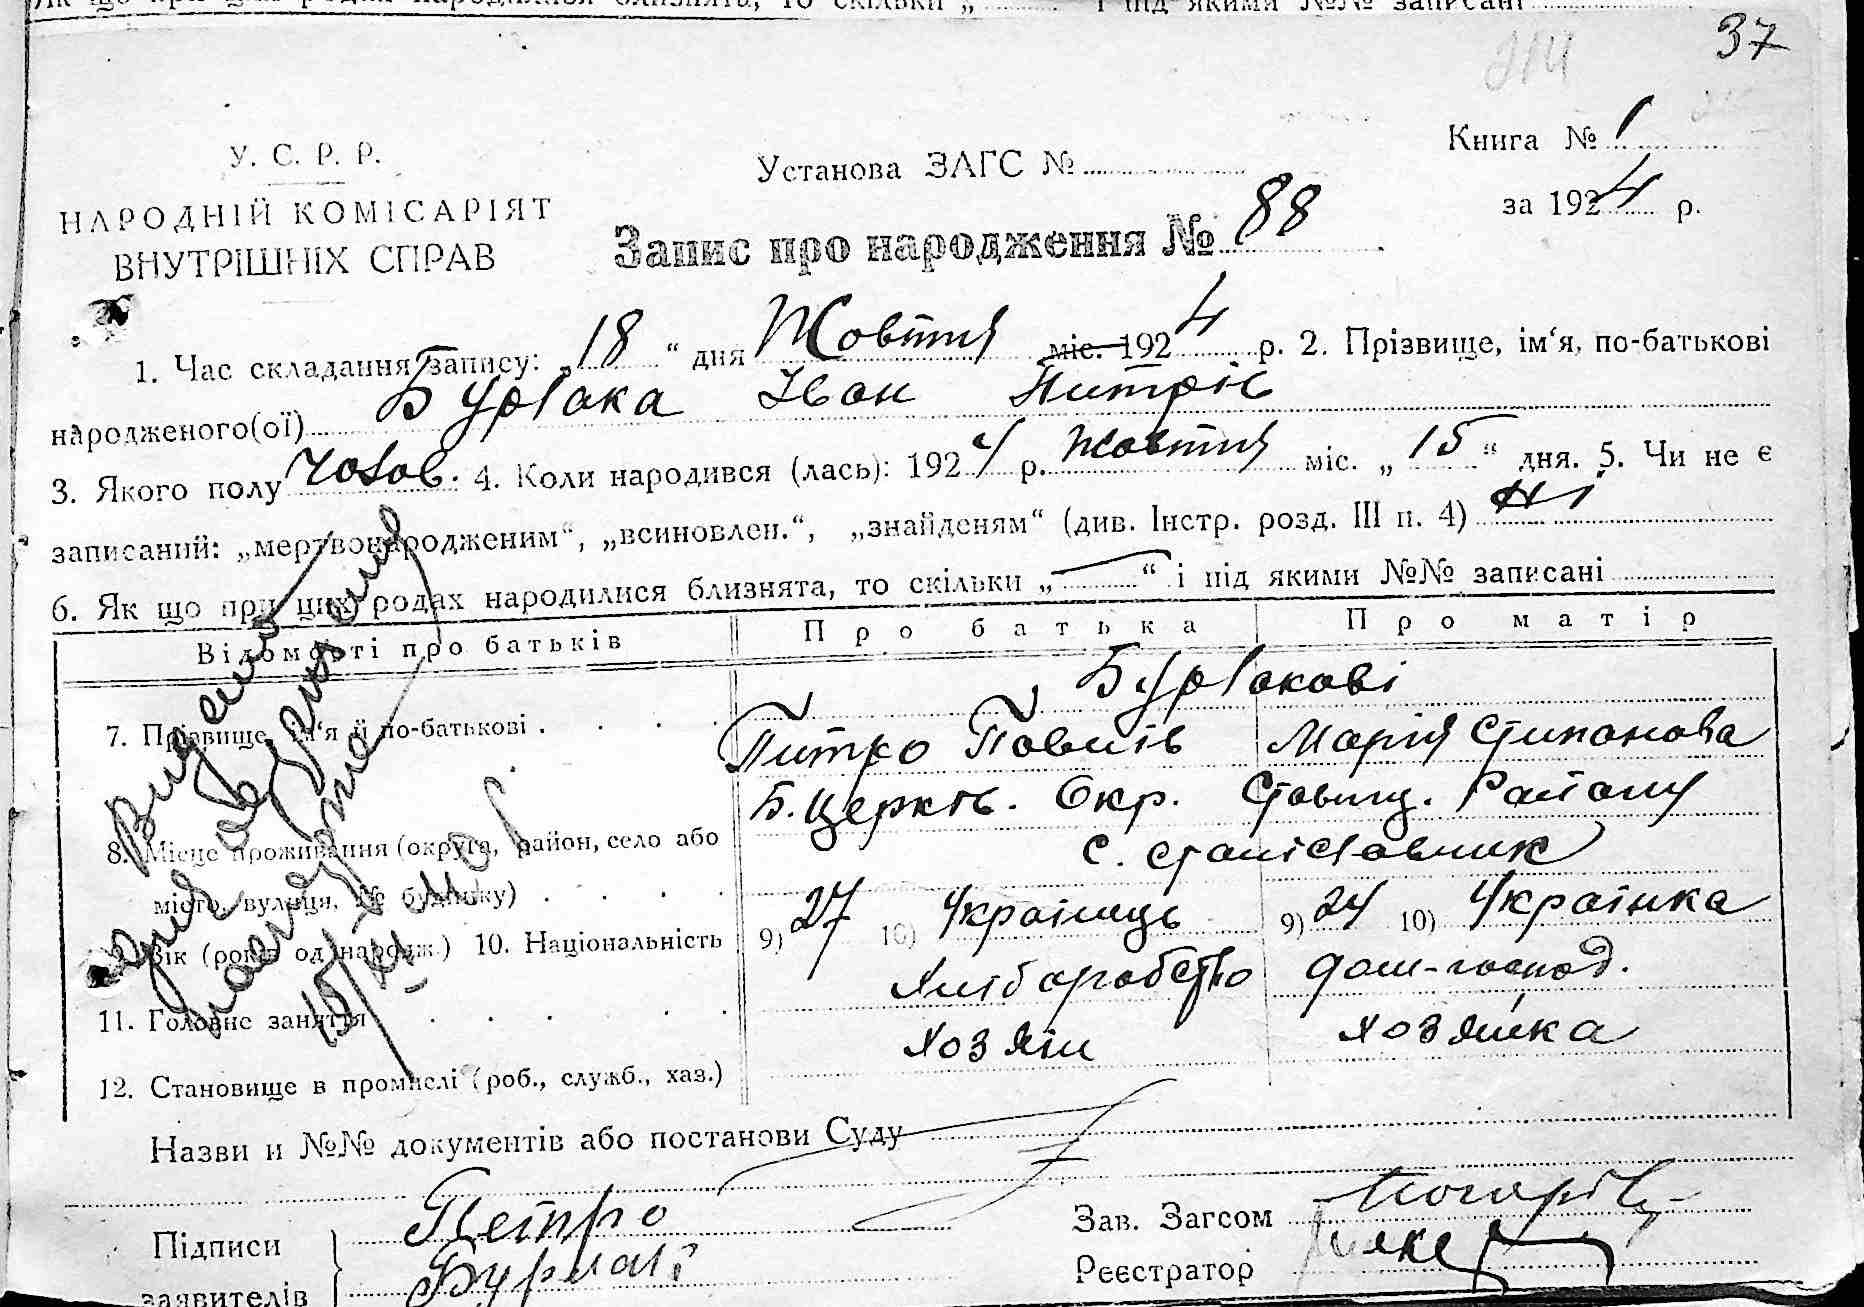 Як що при цих родах народилися близнята, то скільки „ “ і під якими №№ записані
37
314
Книга № 1
У. С. Р. Р.
Установа ЗАГС №
за 1924 р.
НАРОДНІЙ КОМІСАРІЯТ
ВНУТРІШНІХ СПРАВ
Запис про народження № 88
1. Час складання запису: „18“ дня Жовтня міс. 1924 р. 2. Прізвище, ім‘я, по-батькові
народженого(ої) Бурлака Іван Питрів
3. Якого полу чолов. 4. Коли народився (лась): 1924 р. жовтня міс. „15“ дня. 5. Чи не є
записаний: „мертвонародженим“, „всиновлен.“, „знайденям“ (див. Інстр. розд. III п. 4) Ні
6. Як що при цих родах народилися близнята, то скільки „—“ і під якими №№ записані
Відомості про батьків Про батька Про матір
Бурлакові
7. Прізвище, ім‘я й по-батькові . . . . Питро Павлів Марія Степанова
Б. Церків. Окр. Ставищ. Району
8. Місце проживання (округа, район, село або
с. Станіславчик
місто, вулиця, № будинку) . . . .
9. Вік (років од народж.) 10. Національність 9) 27 10) Українець 9) 24 10) Українка
11. Головне заняття . . . . . Хліборобство дом-господ.
12. Становище в промислі (роб., служб., хаз.) хозяін хозяйка
Видано
паспорта
15/XI
Назви и №№ документів або постанови Суду
Підписи
заявителів
Петро
Бурлака
Зав. Загсом
Реєстратор